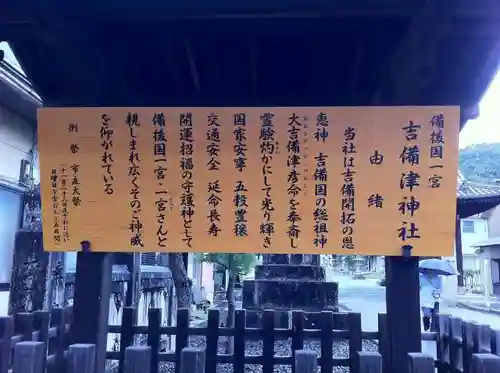 備後国一宮
吉備津神社
由緒
当社は吉備開拓の恩
恵神 吉備国の総祖神
大吉備津彦命を奉斎し
霊験灼かにして光り輝き
国家安寧 五穀豊穣
交通安全 延命長寿
開運招福の守護神として
備後国一宮・一宮さんと
親しまれ広くそのご神威
を仰がれている
例祭 市立大祭